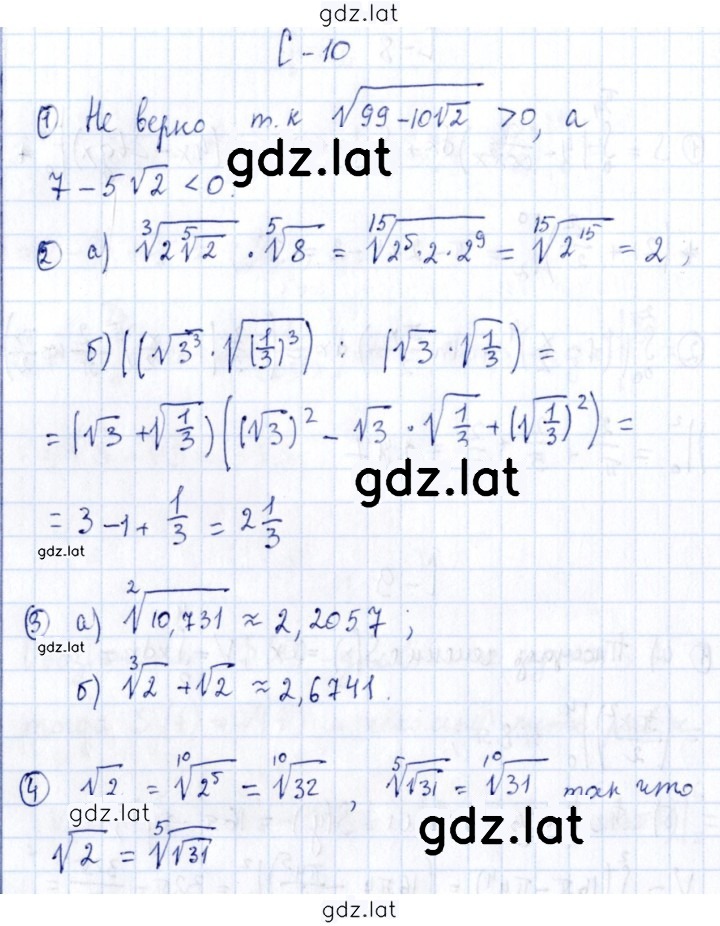 gdz.lat
С-10
① Не верно т.к √(99-10√2) >0, а
gdz.lat
7-5√2 <0.
② а) ∛(2⁵√2) · ⁵√8 = ¹⁵√(2⁵·2·2⁹) = ¹⁵√(2¹⁵) = 2;
б) ((√3³ · √(1/3)³) : (√3 · √(1/3)) =
= (√3 + √(1/3)) ((√3)² - √3 · √(1/3) + (√(1/3))²) =
gdz.lat
= 3-1+ 1/3 = 2 1/3
gdz.lat
③ а) ²√(10,731) ≈ 2,2057;
gdz.lat
б) ∛2 + √2 ≈ 2,6741.
④ √2 = ¹⁰√(2⁵) = ¹⁰√32, ⁵√(√31) = ¹⁰√31 так что
gdz.lat
gdz.lat
√2 = ⁵√(√31)
gdz.lat